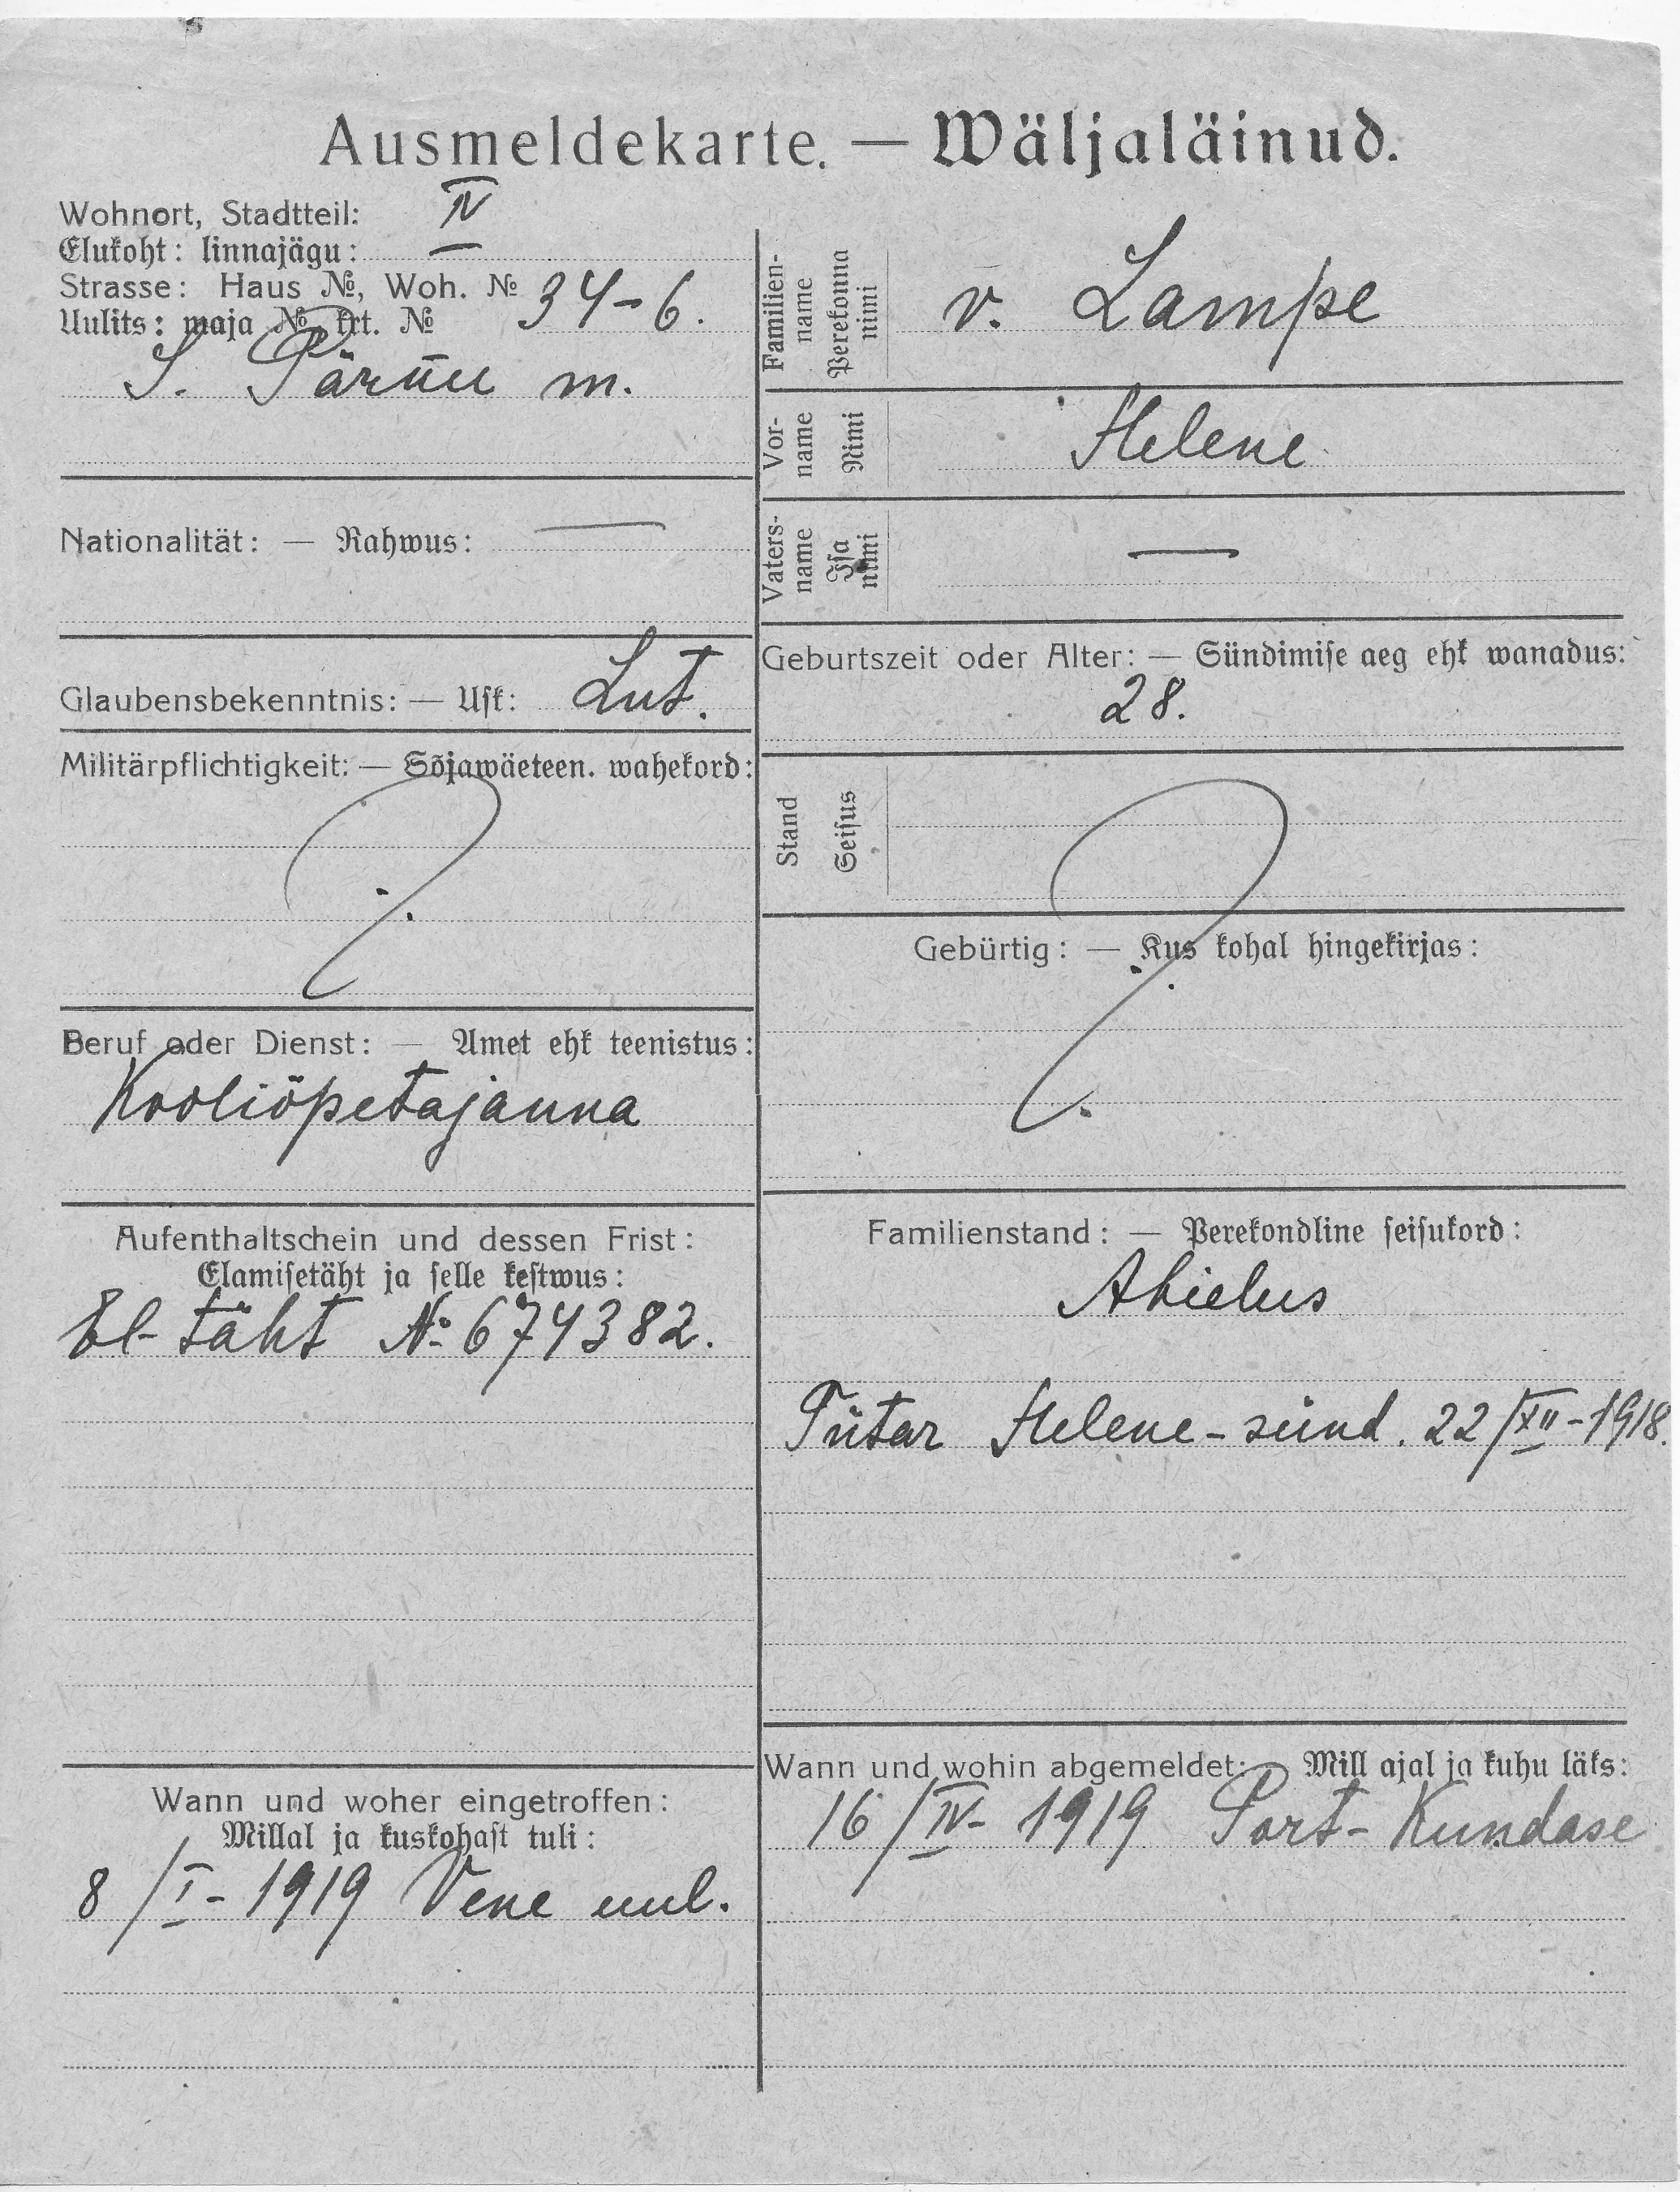 Ausmeldekarte. — Wäljaläinud.
Wohnort, Stadtteil: IV
Elukoht: linnajägu:
Strasse: Haus №, Woh. № 34-6.
Uulits: maja № krt. №
S. Pärnu m.
Nationalität: — Rahwus: —
Glaubensbekenntnis: — Usk: Lut.
Militärpflichtigkeit: — Sõjawäeteen. wahekord:
Beruf oder Dienst: — Amet ehk teenistus:
Kooliõpetajanna
Aufenthaltschein und dessen Frist:
Elamisetäht ja selle kestwus:
El-täht № 674382.
Wann und woher eingetroffen:
Millal ja kuskohast tuli:
8/I-1919 Vene uul.
Familien-name Perekonna nimi v. Lampe
Vor-name Nimi Helene
Vaters-name Isa nimi —
Geburtszeit oder Alter: — Sündimise aeg ehk wanadus:
28.
Stand Seisus
Gebürtig: — Kus kohal hingekirjas:
Familienstand: — Perekondline seisukord:
Abielus
Tütar Helene - sünd. 22/XII-1918.
Wann und wohin abgemeldet: Mill ajal ja kuhu läks:
16/IV-1919 Port-Kundase